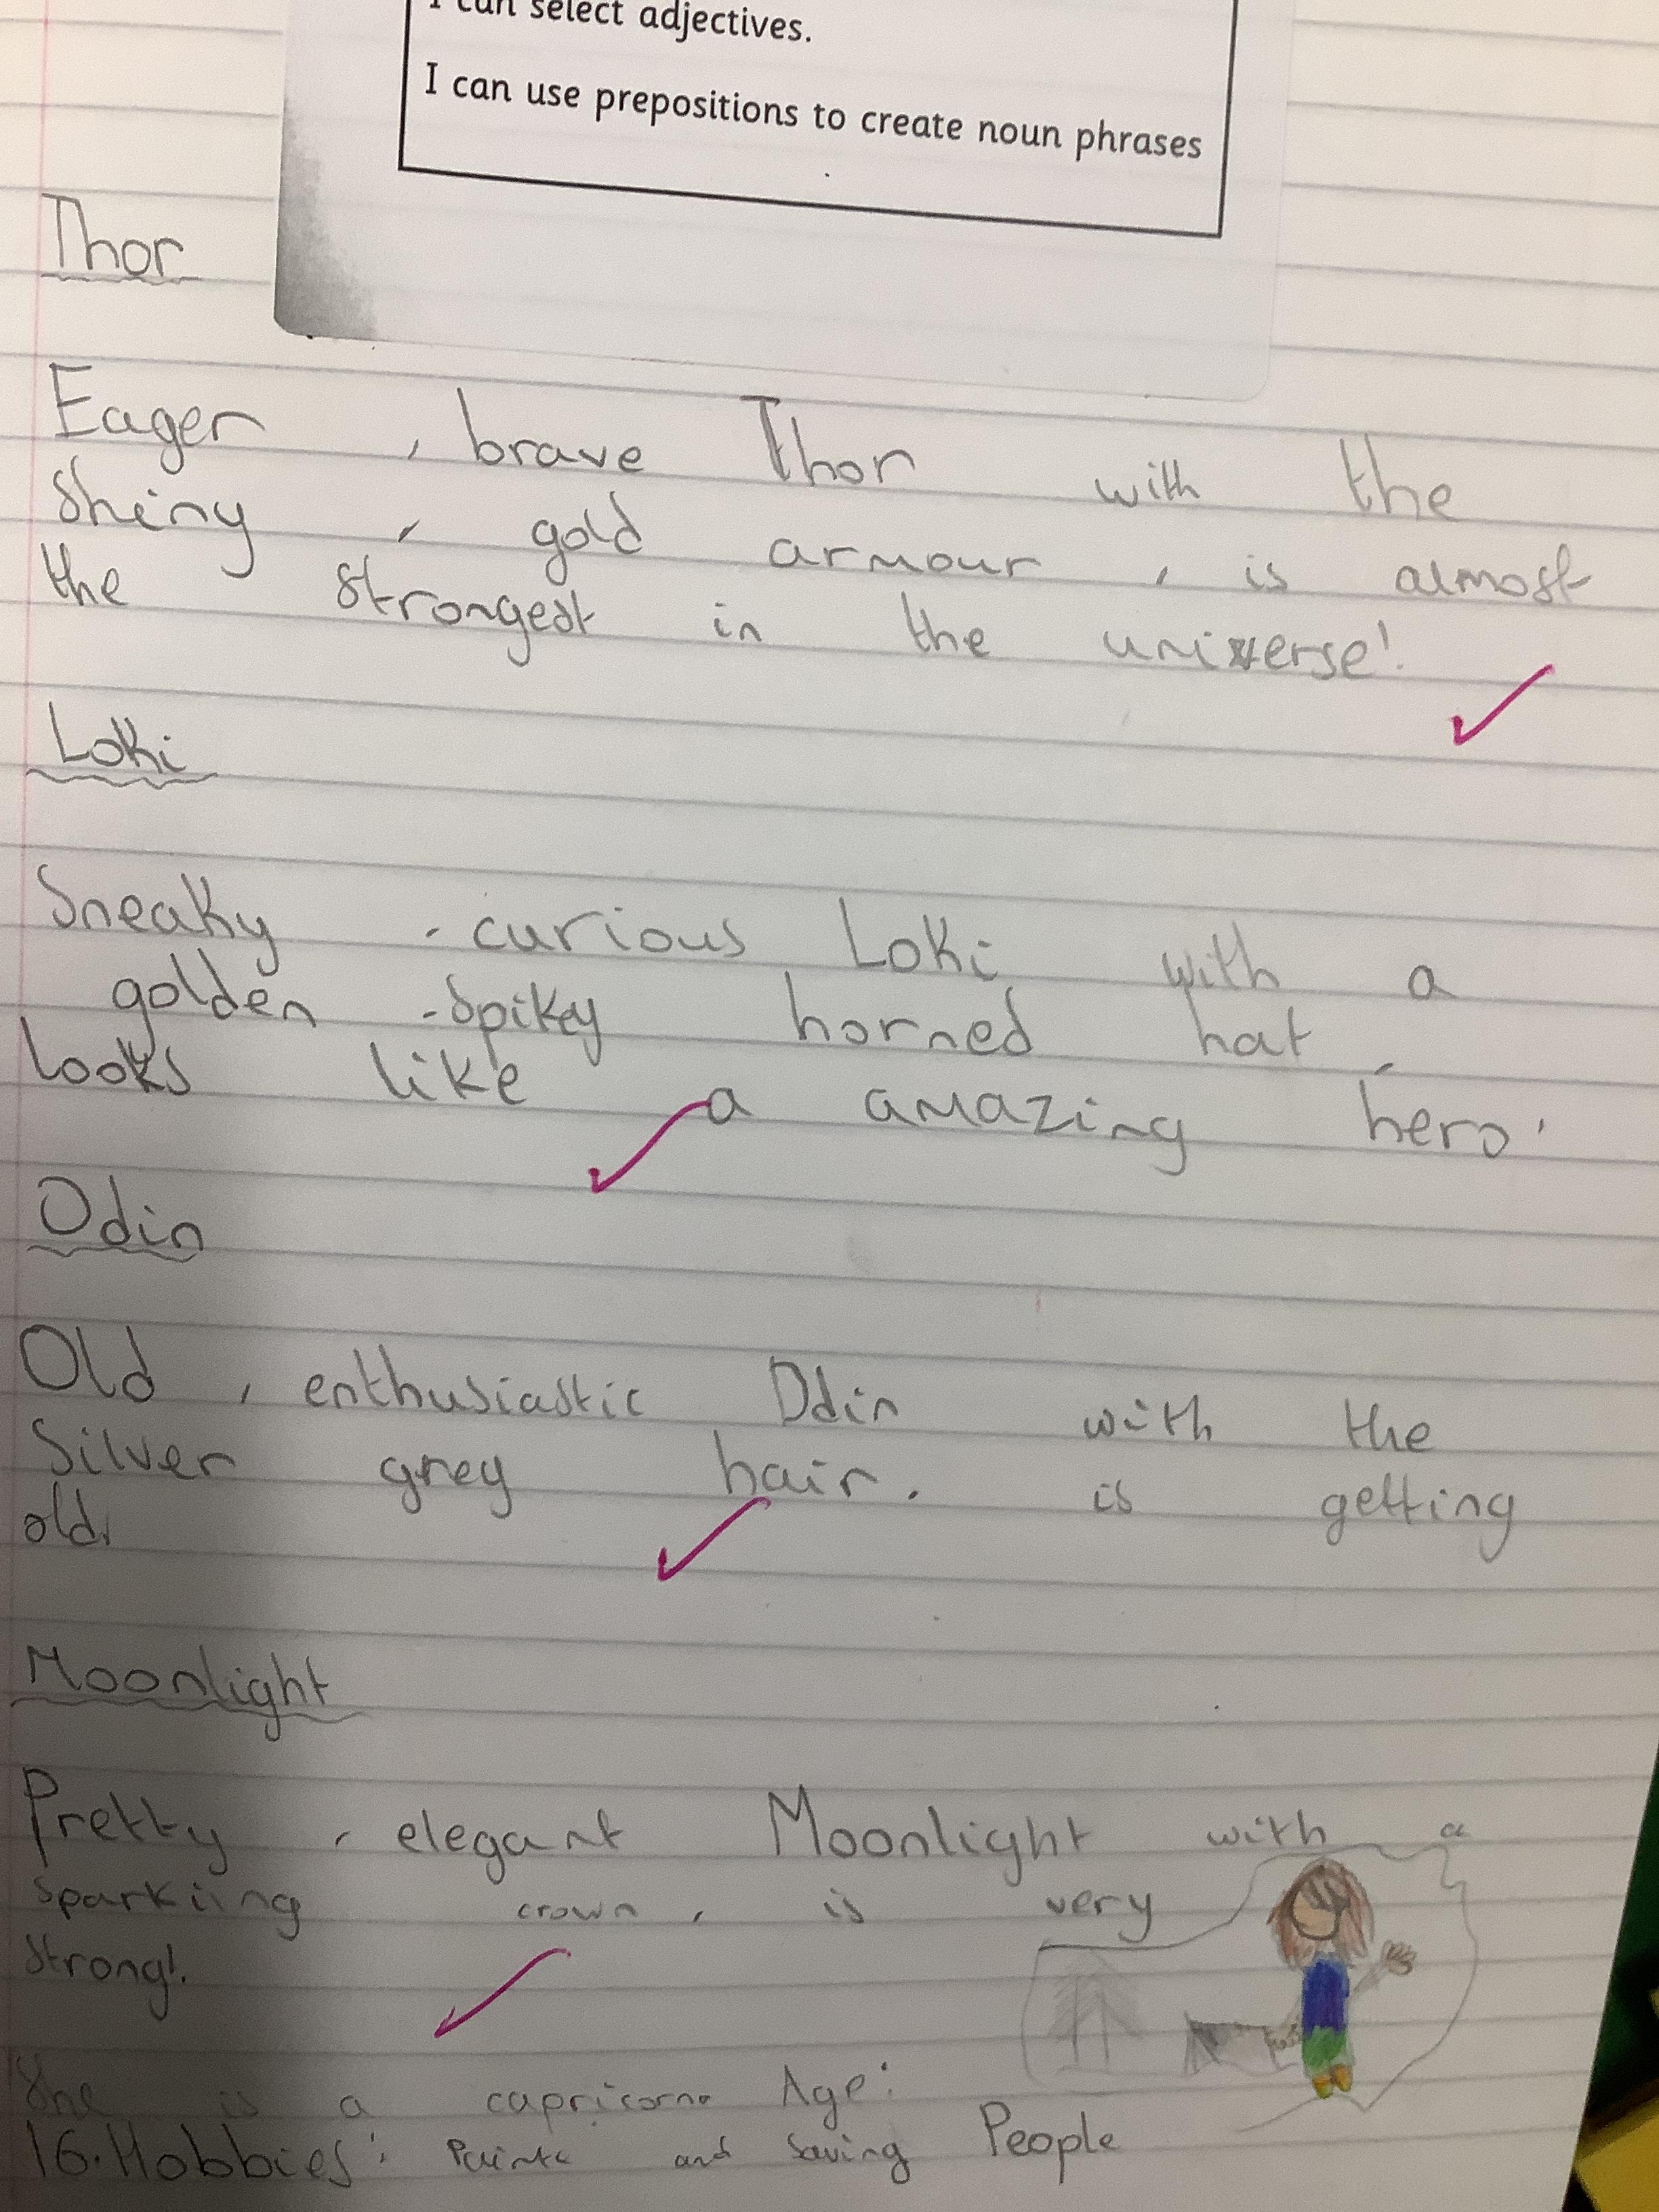 I can select adjectives.
I can use prepositions to create noun phrases
Thor
Eager , brave Thor with the
Shiny , gold armour , is almost
the strongest in the universe!
Loki
Sneaky , curious Loki with a
golden , spikey horned hat ,
looks like a amazing hero.
Odin
Old , enthusiastic Odin with the
Silver grey hair . is getting
old.
Moonlight
Pretty , elegant Moonlight with a
sparkling crown , is very
strong!
She is a capricorne Age:
16. Hobbies: and Saving People